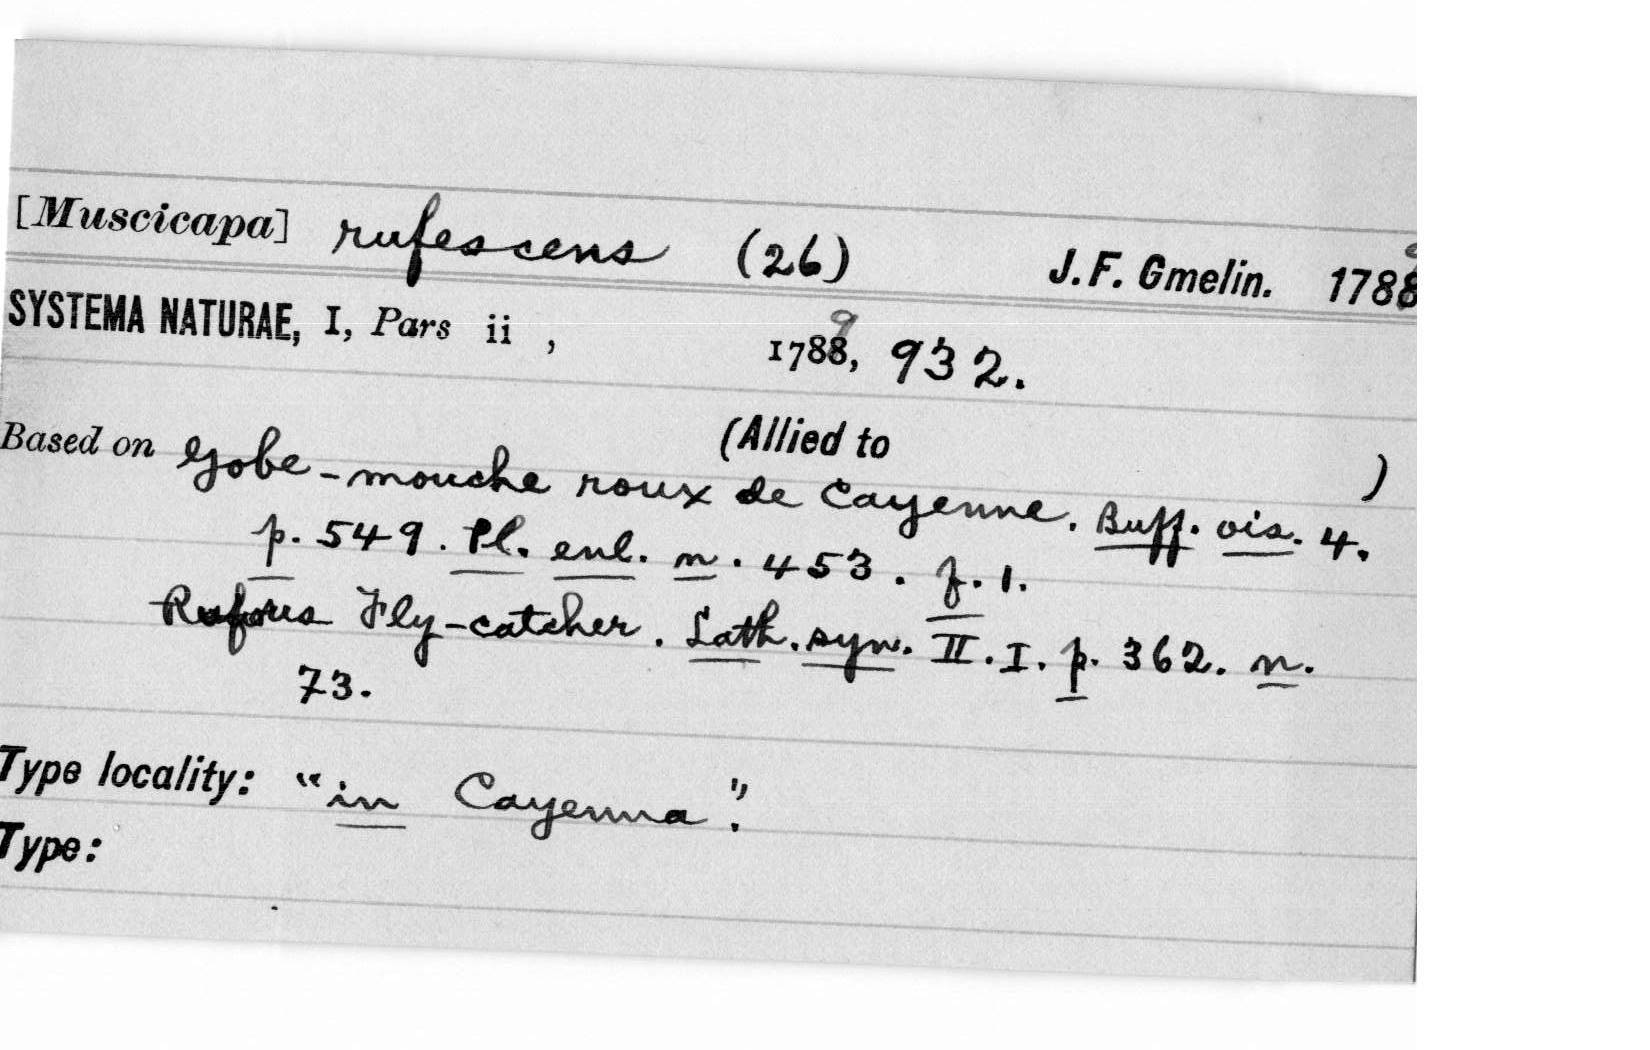 [Muscicapa] rufescens (26) J.F. Gmelin. 1788
SYSTEMA NATURAE, I, Pars ii , 17889, 932.
(Allied to )
Based on Gobe-mouche roux de Cayenne. Buff. ois. 4.
p. 549. Pl. enl. n. 453. f. 1.
Rufous Fly-catcher. Lath. syn. II. I. p. 362. n.
73.
Type locality: "in Cayenna".
Type: